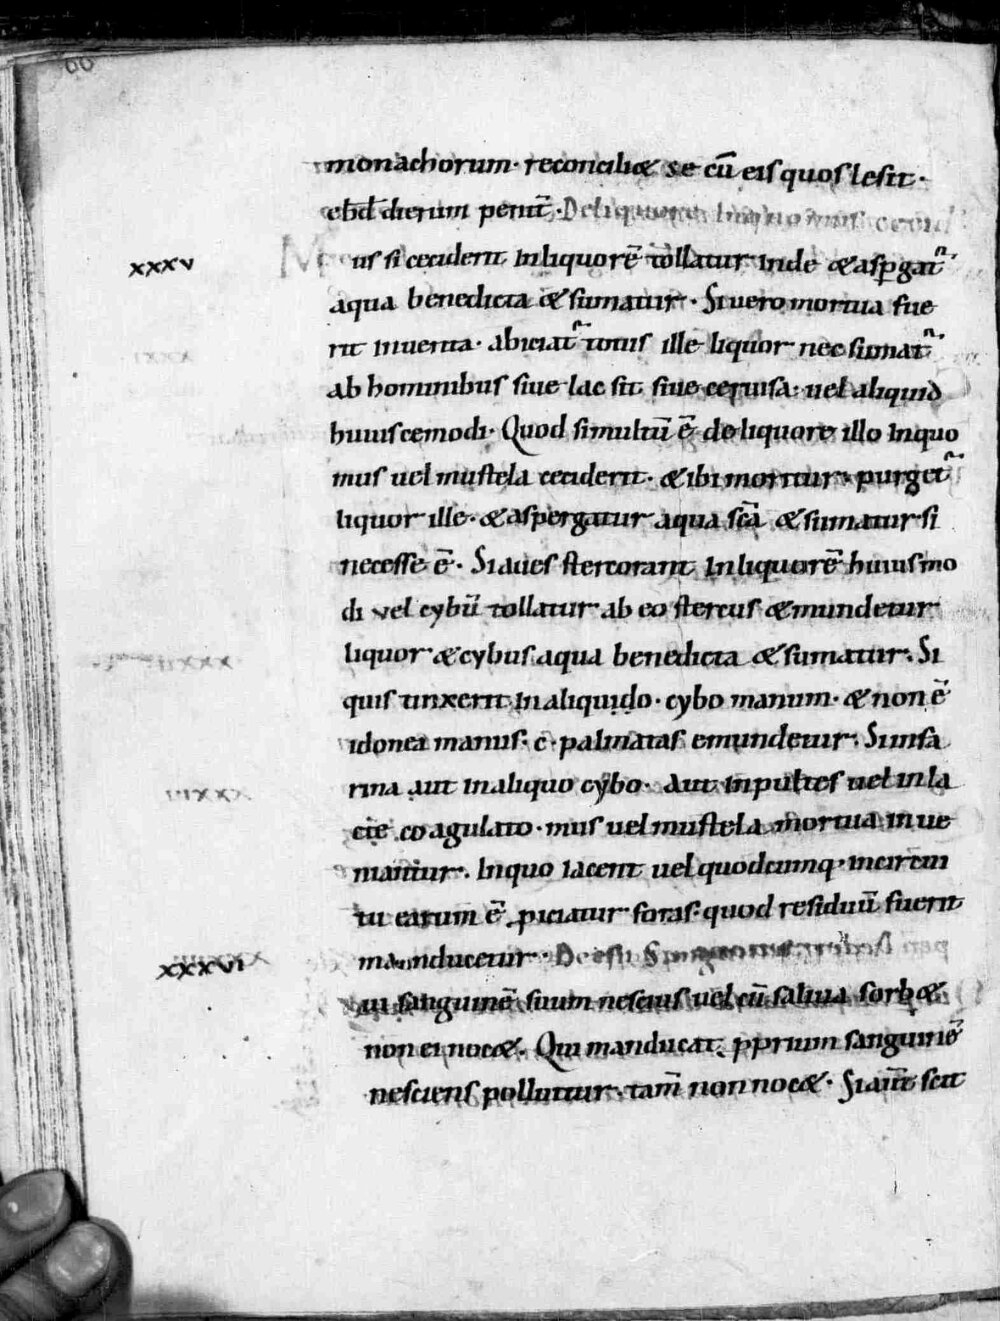 66
monachorum · reconciliæ se cū eis quos lesit ·
ebđ dierum penit̄ · De liquore in quo mus cecid
xxxv
Mus si ceciderit In liquorē tollatur inde & aspgat̃ ·
aqua benedicta & sumatur · Si uero mortua fue
rit inuenta · abiciat̃ totus ille liquor nec sumat̃
ab hominibus siue lac sit siue ceruisa · uel aliquid
huiuscemodi · Quod si multū ē de liquore illo In quo
mus uel mustela ceciderit · & ibi moritur · purget̃
liquor ille · & aspergatur aqua scā & sumatur si
necesse ē · Si aues stercorant In liquorē huiusmo
di vel cybū tollatur ab eo stercus & mundetur
liquor & cybus aqua benedicta & sumatur · Si
quis tinxerit In aliquido · cybo manum · & non ē
idonea manus · c · palmatas emundetur · Si in fa
rina aut In aliquo cybo · Aut In pultes uel In la
cte coagulato · mus uel mustela mortua in ue
niantur · In quo iacent uel quodcumq · in circui
tu earum ē piciatur foras · quod residuū fuerit
manducetur · De esu Sanguinis
xxxvi
ui sanguinē suum nescius uel cū saliua sorbæ
non ei nocæ · Qui manducat pprium sanguinē
nesciens polluitur · tam̄ non nocæ · Si aut̄ scit